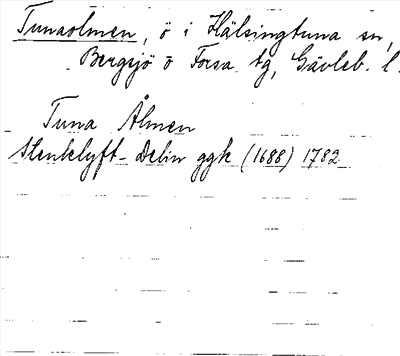 Tunaolmen, ö i Hälsingtuna sn,
Bergsjö o Forsa tg, Gävleb. l.
Tuna Ålmen
Stenklyft-Delin ggk (1688) 1782